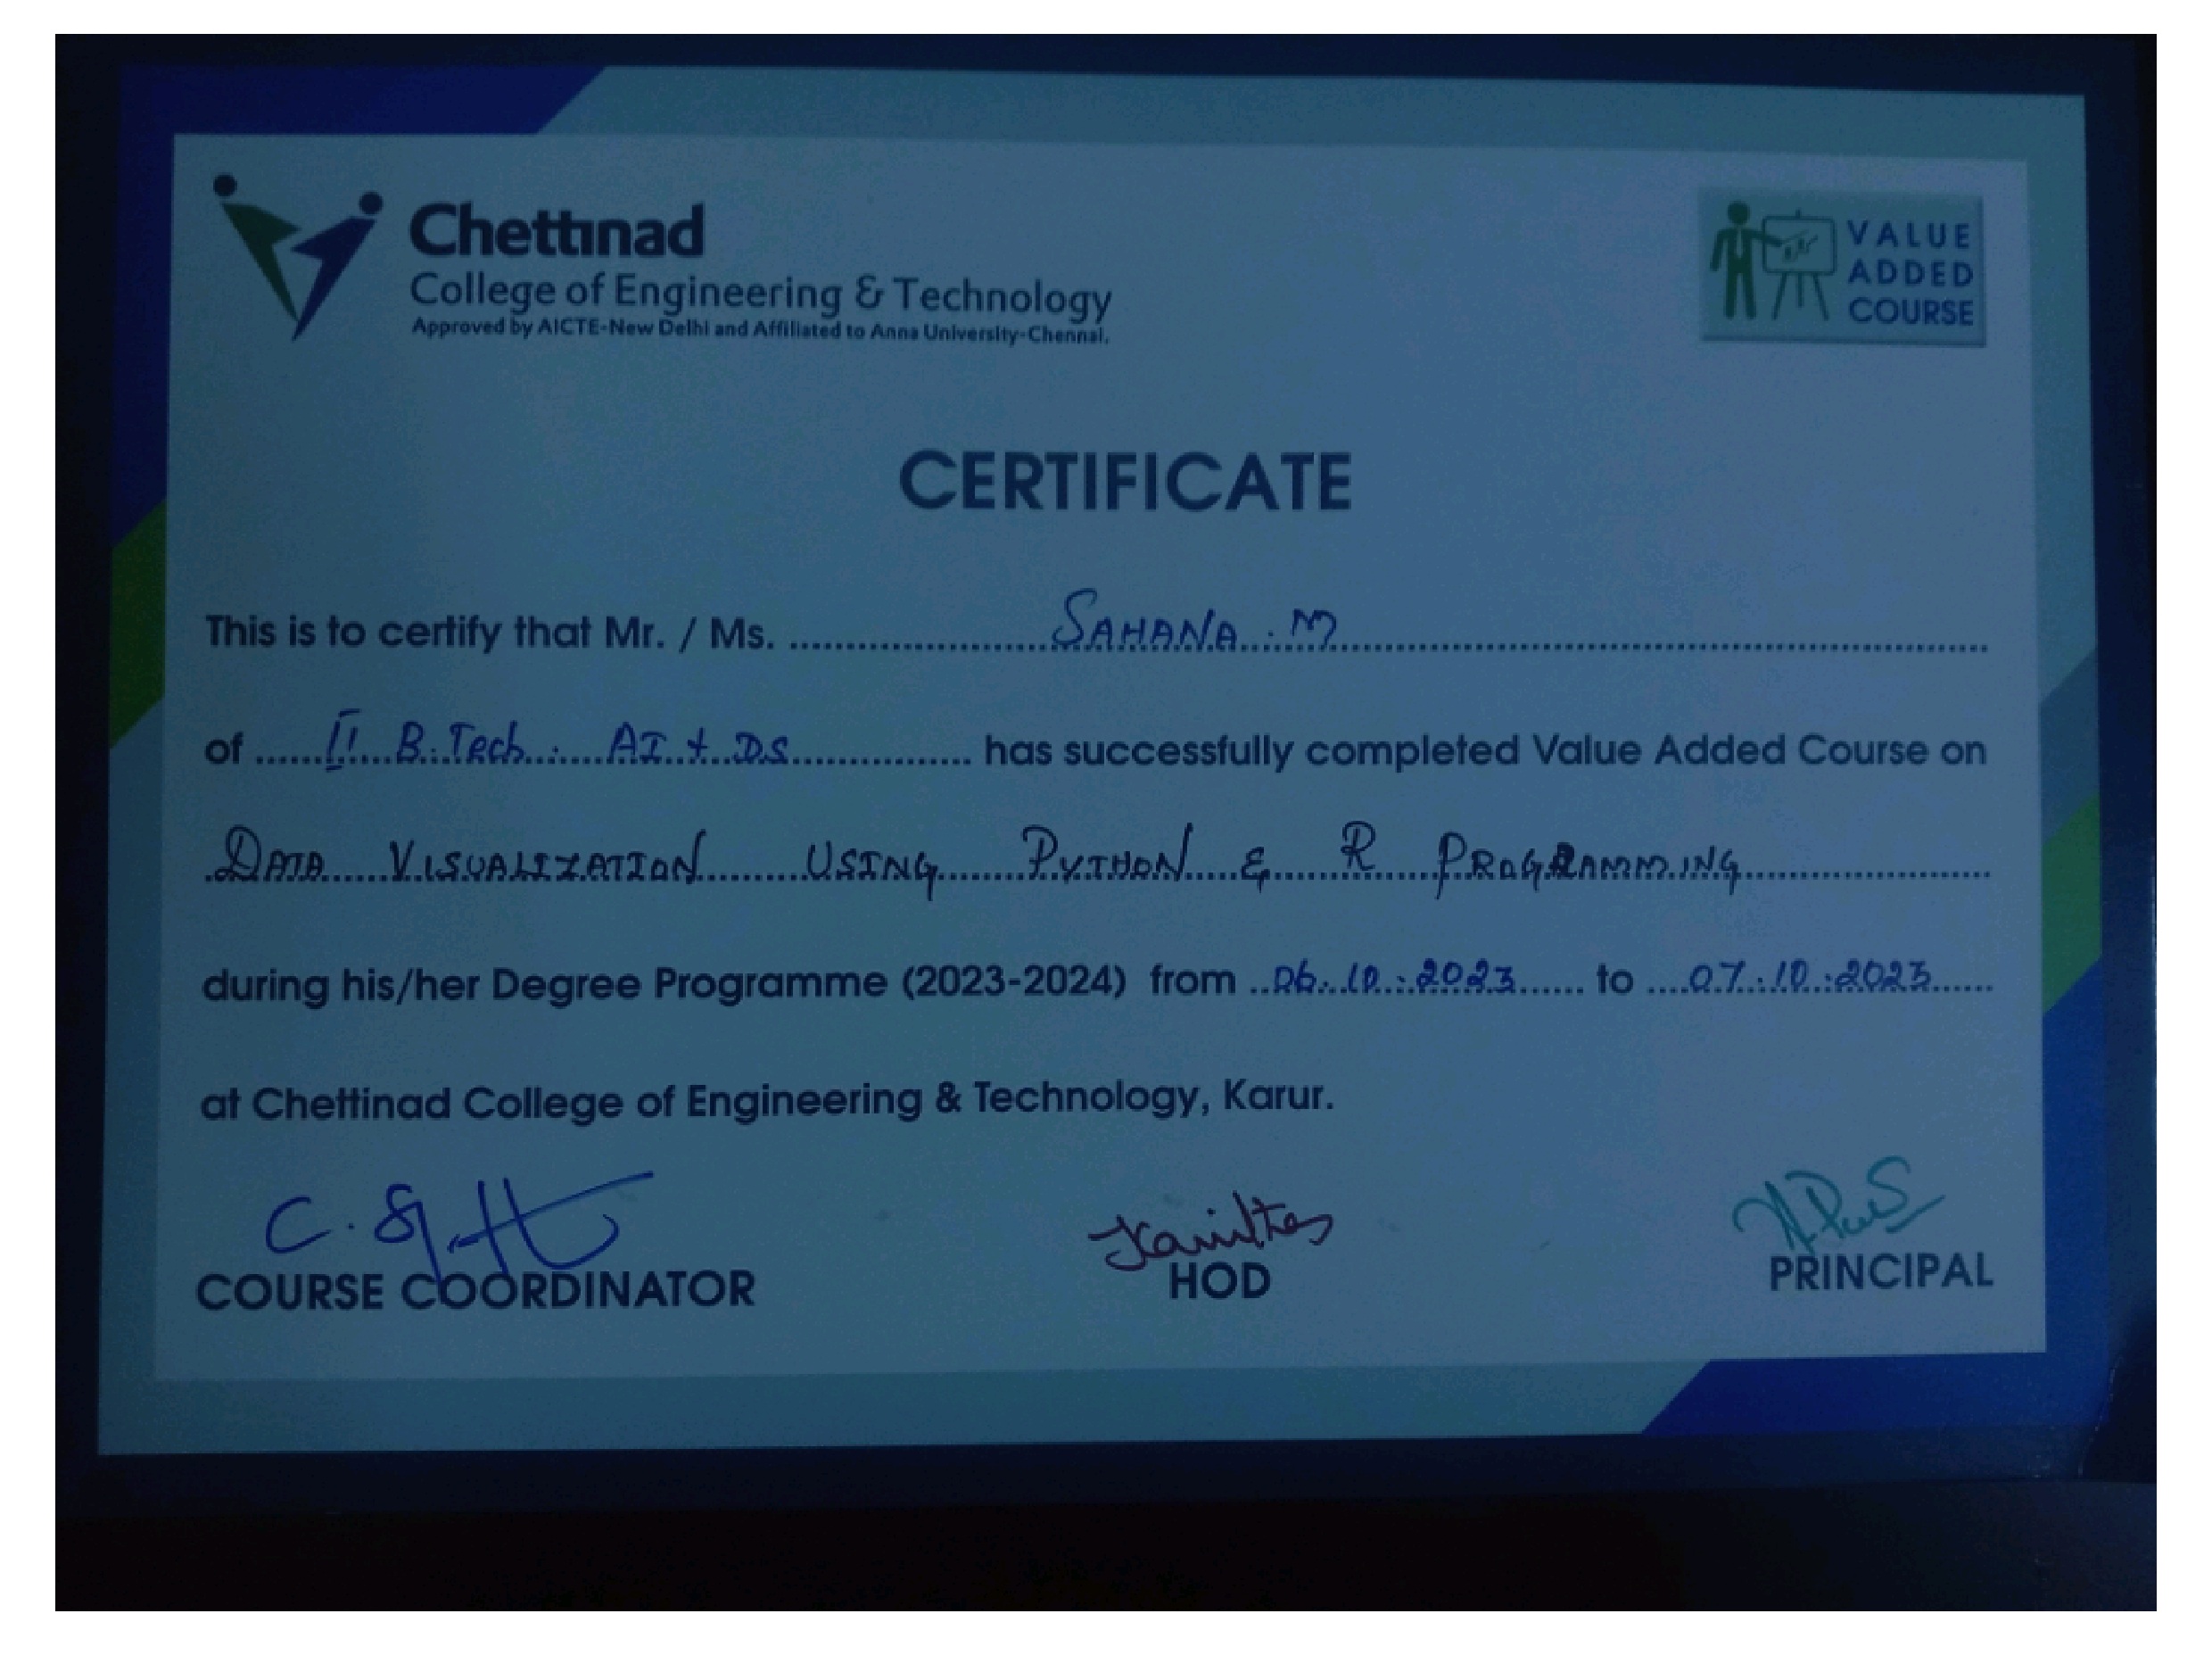 Chettinad
College of Engineering & Technology
Approved by AICTE-New Delhi and Affiliated to Anna University-Chennai.
VALUE
ADDED
COURSE
CERTIFICATE
This is to certify that Mr. / Ms. SAHANA . M
of II B.Tech. AI & DS has successfully completed Value Added Course on
DATA VISUALIZATION USING PYTHON & R PROGRAMMING
during his/her Degree Programme (2023-2024) from 06.10.2023 to 07.10.2023
at Chettinad College of Engineering & Technology, Karur.
COURSE COORDINATOR
HOD
PRINCIPAL